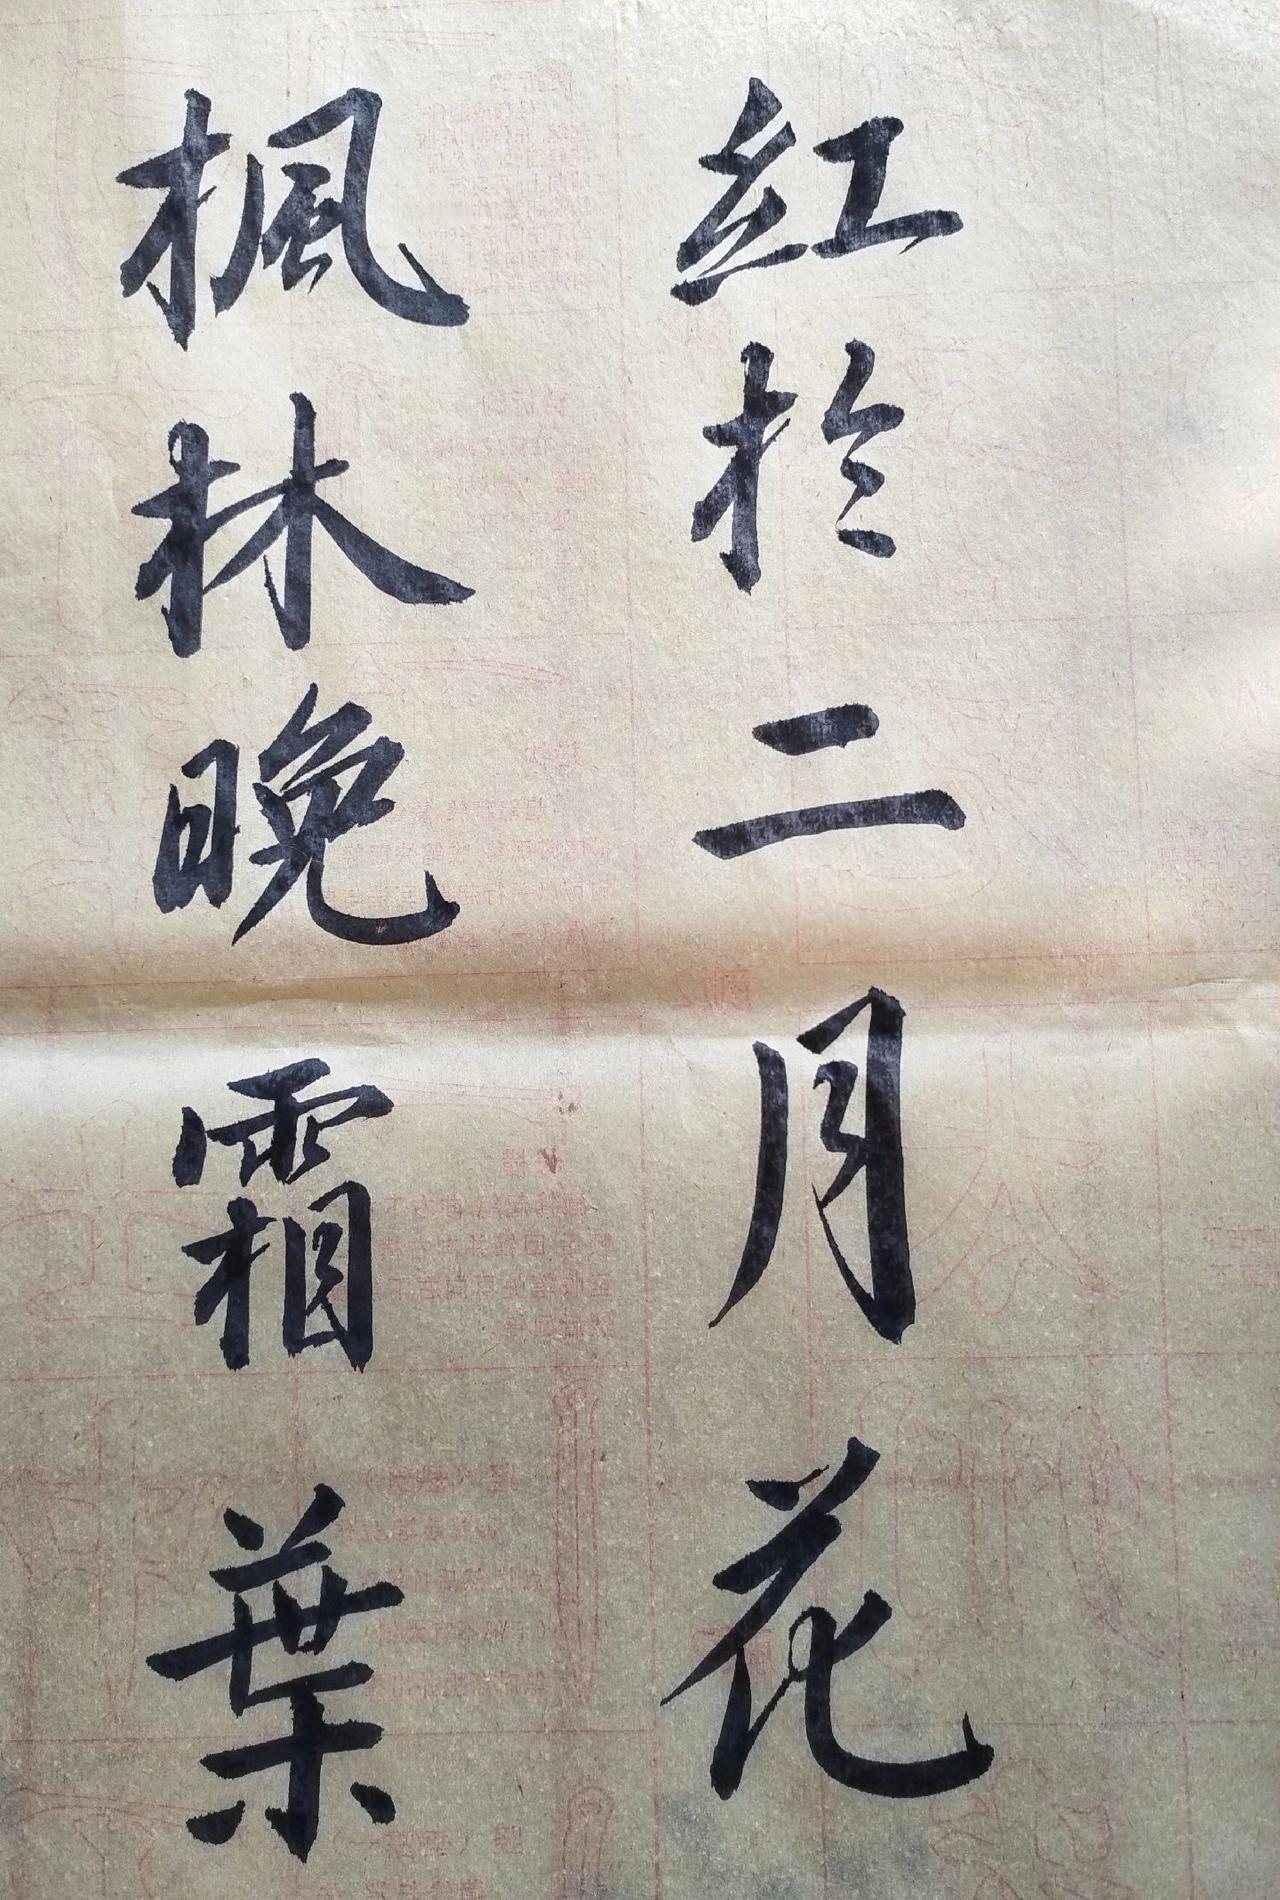 楓林晚霜葉
紅於二月花